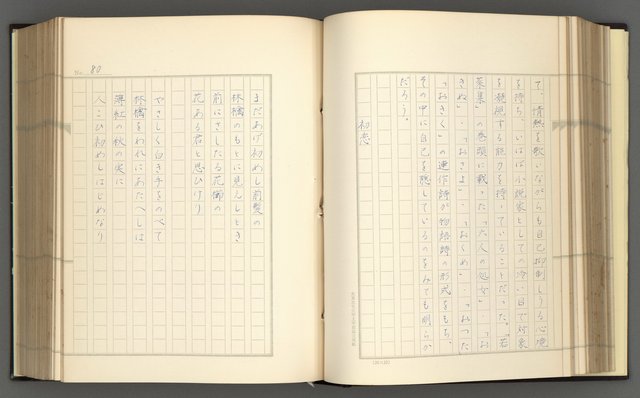 て、情熱を歌いながらも自己抑制しうる心境
を持ち、いはば小説家としての冷い目で対象
を凝視する能力を持っていることだった。「若
菜集」の巻頭に載った「六人の処女」‥「お
きぬ」‥「おさよ」‥「おくめ」‥「おつた
「おきく」の連作詩が物語詩の形式をもち、
その中に自己を隠しているのをみても明らか
だろう。
初恋
No. 80
まだあげ初めし前髪の
林檎のもとに見えしとき
前にさしたる花櫛の
花ある君と思ひけり
やさしく白き手をのべて
林檎をわれにあたへしは
薄紅の秋の実に
人こひ初めしはじめなり